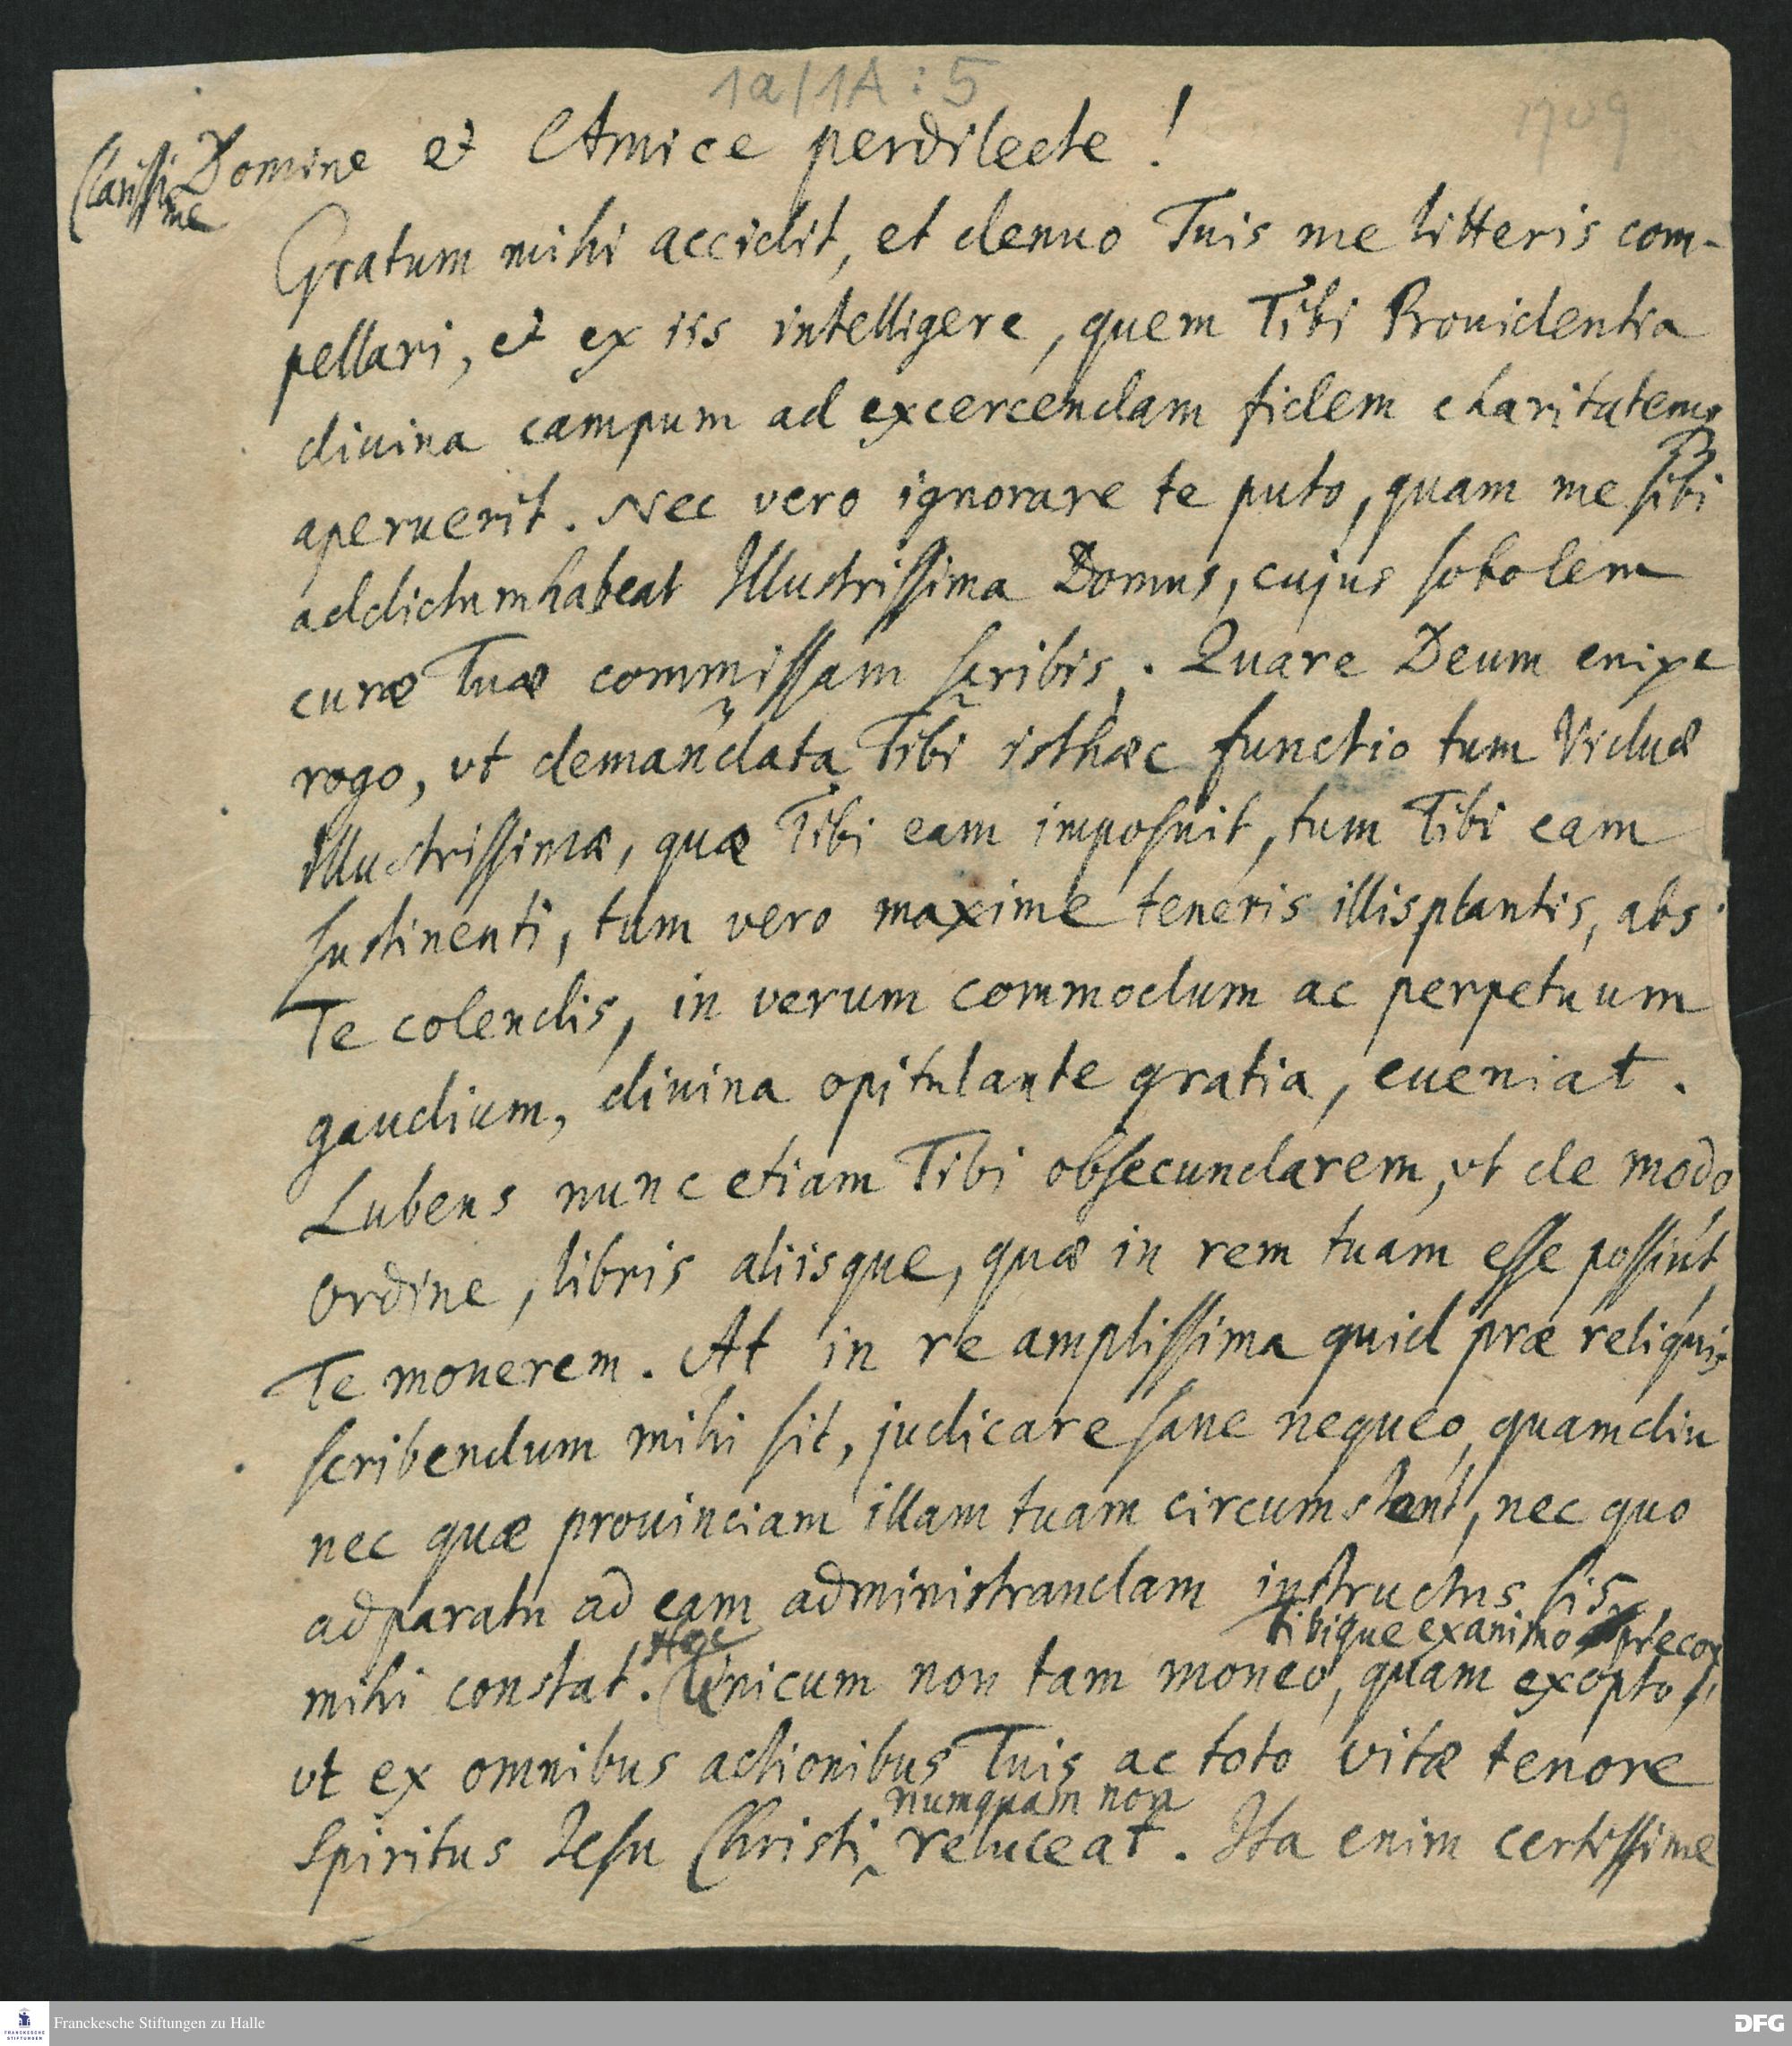 1a/1A : 5
1709
Clarissime Domine et Amice perdilecte!
Gratum mihi accidit, et denuo Tuis me litteris com-
pellari, et ex iis intelligere, quem Tibi Prouidentia
diuina campum ad excercendam fidem charitatemq3
aperuerit. Nec vero ignorare te puto, quam me sibi
addictum habeat Illustrissima Domus, cujus sobolem
curæ Tuæ commissam scribis. Quare Deum enixe
rogo, vt demandata Tibi isthæc functio tum Viduæ
illustrissimæ, quæ Tibi eam imposuit, tum Tibi eam
sustinenti, tum vero maxime teneris illis plantis, abs
Te colendis, in verum commodum ac perpetuum
gaudium, diuina opitulante gratia, eueniat.
Lubens nunc etiam Tibi obsecundarem, vt de modo
ordine, libris aliisque, quæ in rem tuam esse possint,
Te monerem. At in re amplissima quid præ reliquis
scribendum mihi sit, judicare sane nequeo, quamdiu
nec quæ prouinciam illam tuam circumstent, nec quo
adparatu ad eam administrandam instructus sis,
Hoc tibique ex animo precor
mihi constat. Unicum non tam moneo, quam exopto,
vt ex omnibus actionibus Tuis ac toto vitæ tenore
numquam non
Spiritus Jesu Christi reluceat. Ita enim certissime
Franckesche Stiftungen zu Halle
DFG